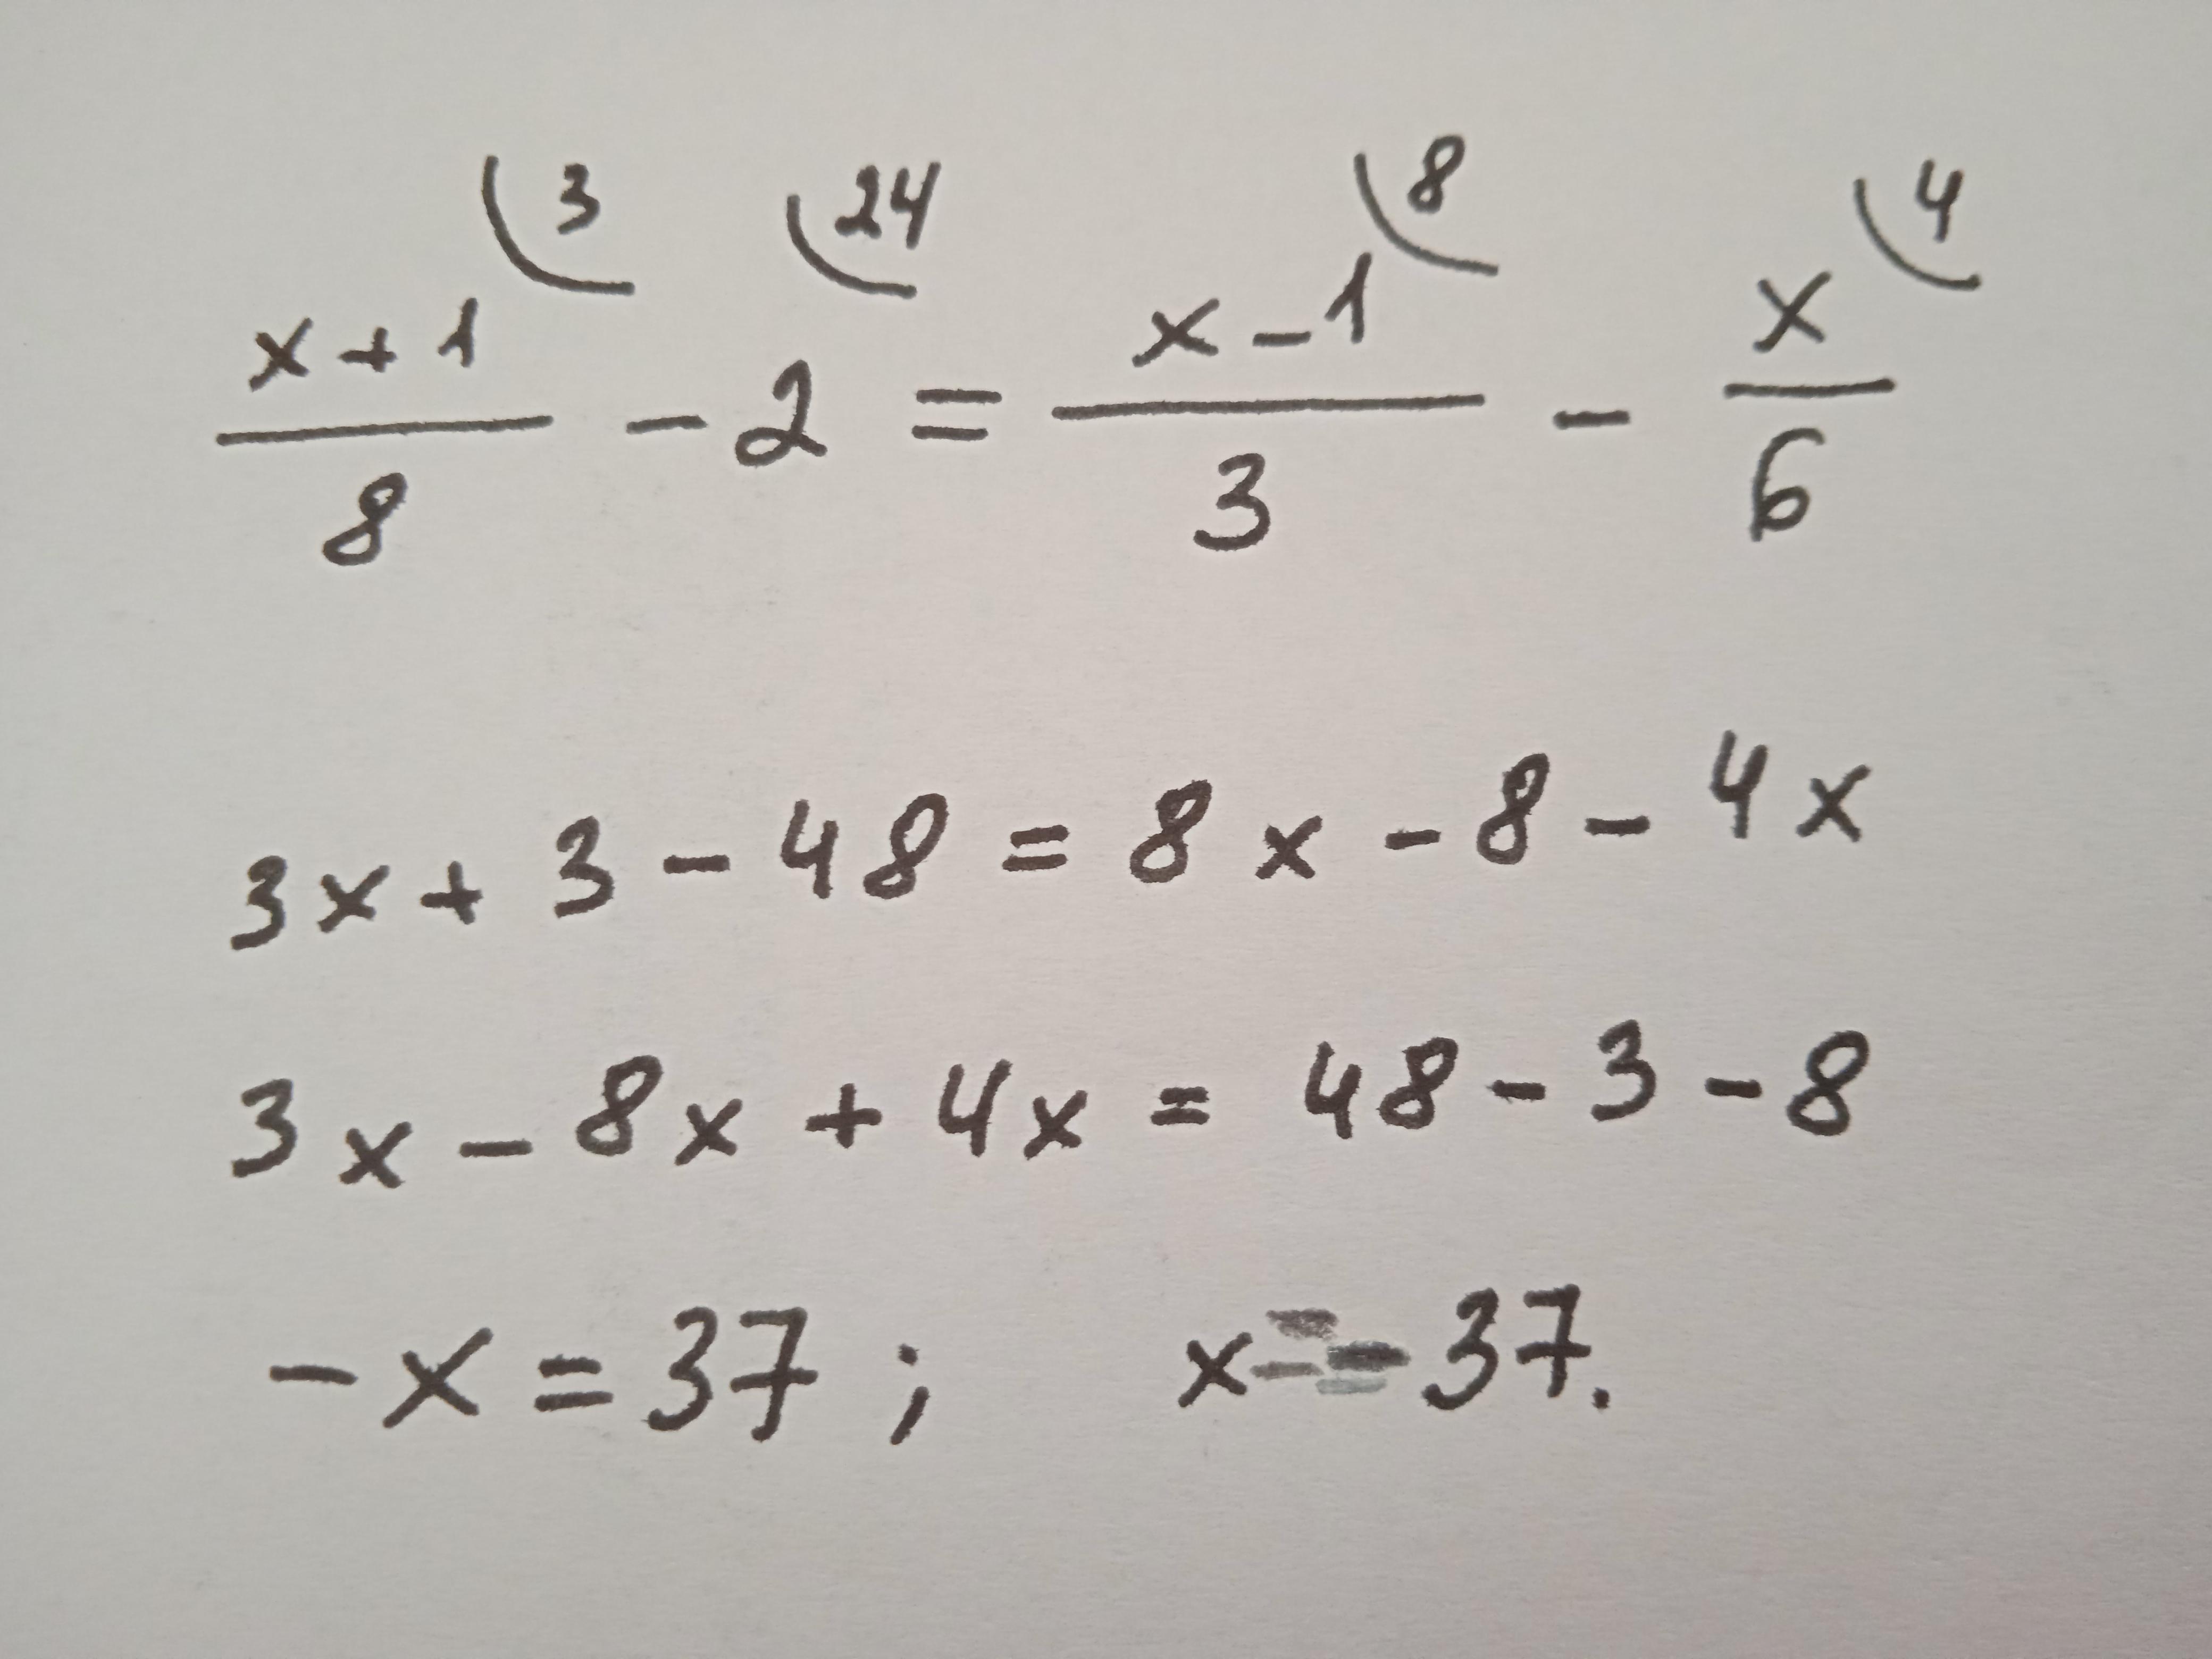 (x+1)/8 ⁽³ - 2 ⁽²⁴ = (x-1)/3 ⁽⁸ - x/6 ⁽⁴
3x + 3 - 48 = 8x - 8 - 4x
3x - 8x + 4x = 48 - 3 - 8
-x = 37 ; x = - 37.